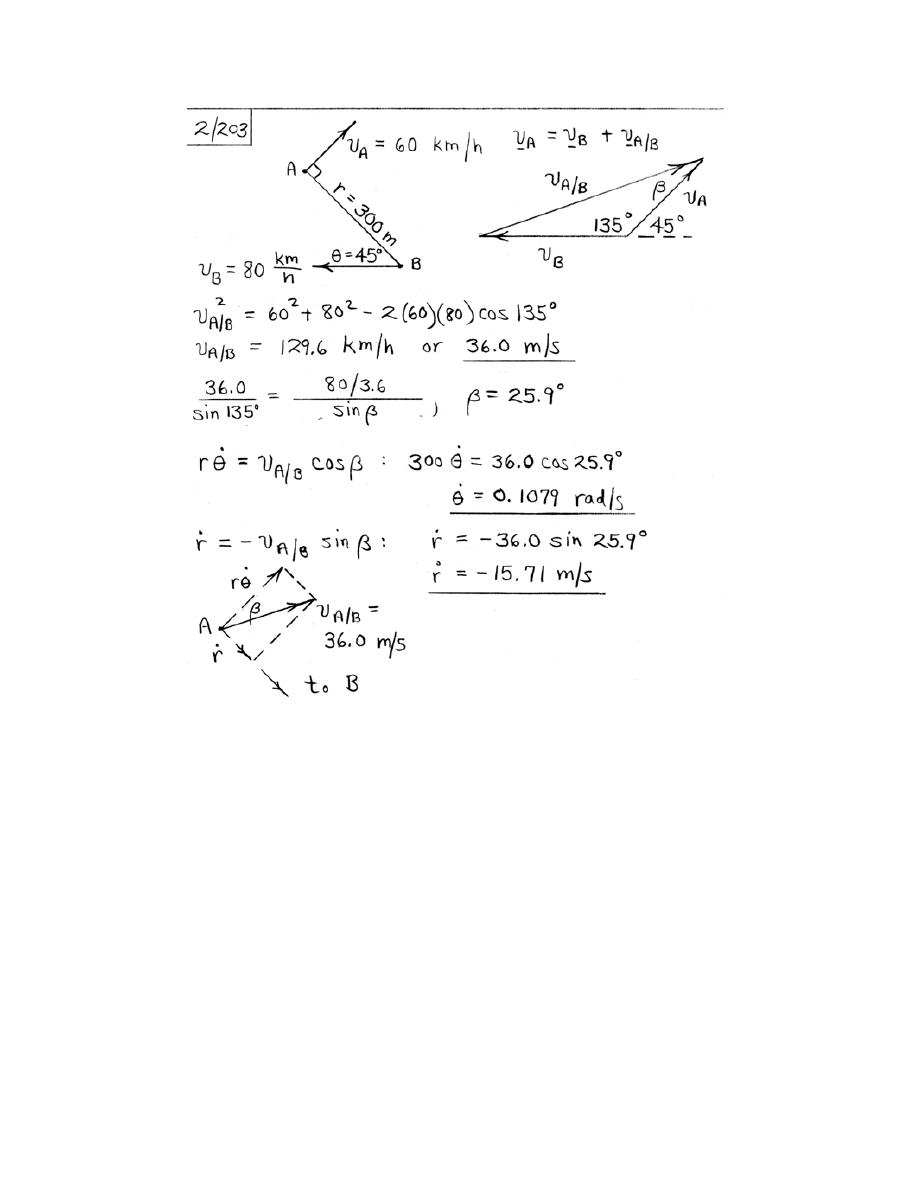 2/203
v_A = 60 km/h   v_A = v_B + v_A/B
A
r = 300 m
v_A/B
β
v_A
135° 45°
v_B
v_B = 80 km/h   θ = 45°   B
v_A/B² = 60² + 80² - 2(60)(80) cos 135°
v_A/B = 129.6 km/h or 36.0 m/s
36.0/sin 135° = 80/3.6/sin β , β = 25.9°
rθ̇ = v_A/B cos β : 300 θ̇ = 36.0 cos 25.9°
θ̇ = 0.1079 rad/s
ṙ = - v_A/B sin β : ṙ = -36.0 sin 25.9°
ṙ = -15.71 m/s
rθ̇
β
A
v_A/B =
36.0 m/s
ṙ
to B